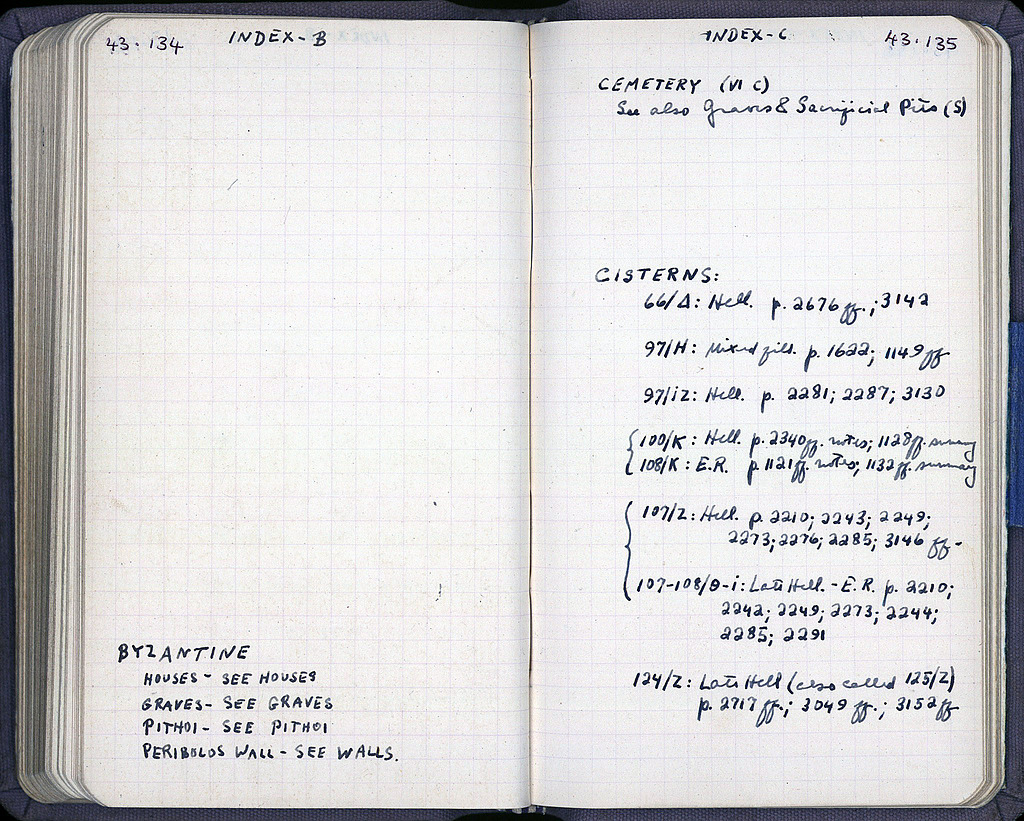 43.134 INDEX-B
BYZANTINE
HOUSES - SEE HOUSES
GRAVES - SEE GRAVES
PITHOI - SEE PITHOI
PERIBOLOS WALL - SEE WALLS.
INDEX-C 43.135
CEMETERY (VI C)
See also Graves & Sacrificial Pits (S)
CISTERNS:
66/Δ: Hell. p. 2676 ff.; 3142
97/H: Mixed fill. p. 1622; 1149 ff
97/IZ: Hell. p. 2281; 2287; 3130
100/K: Hell. p. 2340 ff. notes; 1128 ff. summary
108/K: E.R. p. 1121 ff. notes; 1132 ff. summary
107/Z: Hell. p. 2210; 2243; 2249;
2273; 2276; 2285; 3146 ff -
107-108/Θ-i: Late Hell. - E.R. p. 2210;
2242; 2249; 2273; 2244;
2285; 2291
124/Z: Late Hell (also called 125/Z)
p. 2717 ff.; 3049 ff.; 3152 ff